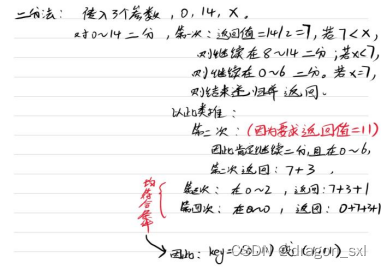 二分法: 传入3个参数, 0, 14, x.
对0~14二分, 第一次: 返回值=14/2=7, 若7<x,
则继续在8~14二分; 若x<7,
则继续在0~6二分。若x=7,
则结束递归并返回。
以此类推:
第二次: (因为要求返回值=11)
因此肯定继续二分, 且在0~6,
第二次返回: 7+3,
第三次: 在0~2, 返回: 7+3+1
第四次: 在0~0, 返回: 0+7+3+1
均符合条件
因此: key=
CSDN @dragon_sxl